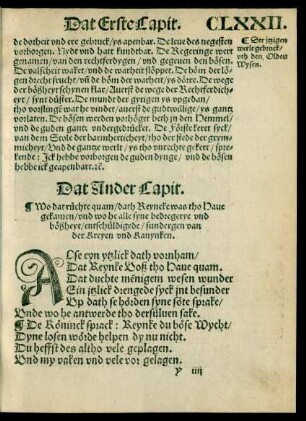 Dat Erste Capit. CLXXII.
de dorheit vnd ere gebruck/ys apenbar. De leue des negesten
vorborgen. Nydt vnd hate kundtbar. De Regeringe wert
genamen/van den rechtferdygen/vnd gegeuen den bösen.
De valscheit waket/vnd de warheit slöppet. De böm der lö-
gen drecht frucht/vn̄ de böm der warheit/ys dörre. De wege
der bößheyt schynen klar/Auerst de wege der Rechtferdich-
eyt/synt düster. De mundt der gyrigen ys vpgedan/
tho vorslingende wat he vindet/auerst de gudtwillige/ys gantz
vorlaten. De bösen werden vorhöget beth in den Hemmel/
vnd de guden gantz vndergedrücket. De Förstekeret syck/
van dem Stole der barmherticheyt/tho der stede der grym-
micheyt/Vnd de gantze werlt/ys tho vnrechte gekert/spre-
kende: Ick hebbe vorborgen de guden dynge/vnd de bösen
hebbe ick geapenbart.ꝛc̄.
¶ Der itzigen
werlt gebruck/
vth den Olden
Wysen.
Dat Ander Capit.
¶ Wo dat rüchte quam/dath Reynke was tho Haue
gekamen/vnd wo he alle syne bedregerye vnd
bößheyt/entschüldigede/sundergen van
der Kreyen vnd Kanynken.
Alse eyn ytzlick dath vornham/
Dat Reynke Voß tho Haue quam.
Dat duchte mënigem wesen wunder
Ein ytzlick drengede syck jnt besunder
Vp dath se hörden syne söte sprake/
Vnde wo he antwerde tho dersüluen sake.
¶ De Köninck sprack: Reynke du böse Wycht/
Dyne losen wörde helpen dy nu nicht.
Du heffst des altho vele geplagen.
Vnd my vaken vnd vele vor gelagen.
y iiij